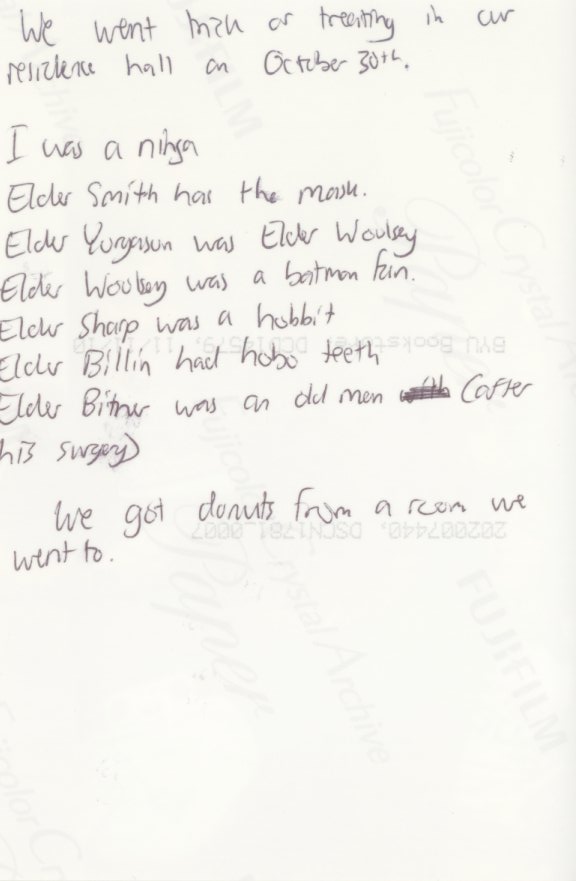 We went trick or treating in our
residence hall on October 30th.
I was a ninja
Elder Smith has the mask.
Elder Yorgason was Elder Woolsey
Elder Woolsey was a batman fan.
Elder Sharp was a hobbit
BYU Bookstore, DCD14579, 11/11/10
Elder Billin had hobo teeth
Elder Bitner was an old man (after
his surgery)
We got donuts from a room we
202007440, DSCN1781_0007
went to.
Fujicolor Crystal Archive
Paper
FUJIFILM